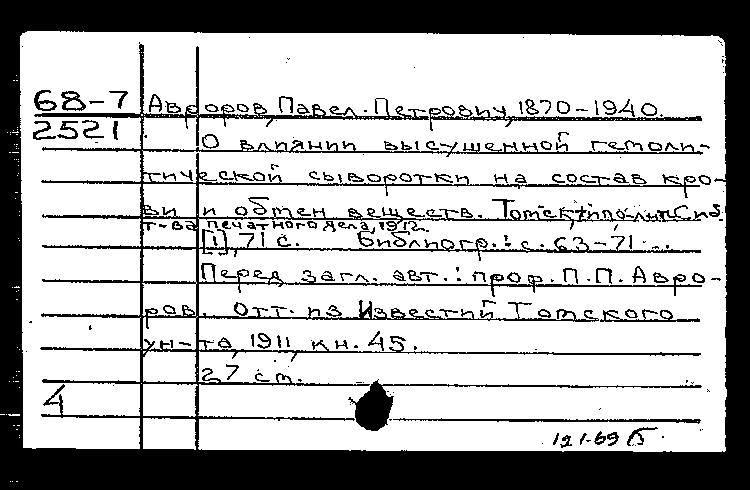 68-7 Авроров, Павел Петрович, 1870-1940.
2521
О влиянии высушенной гемоли-
тической сыворотки на состав кро-
ви и обмен веществ. Томск, типо-лит. Сиб.
т-ва печатного дела, 1912.
[1], 71 с. Библиогр.: с. 63-71.
Перед загл. авт.: проф. П.П. Авро-
ров. Отт. из Известий Томского
ун-та, 1911, кн. 45.
27 см.
4